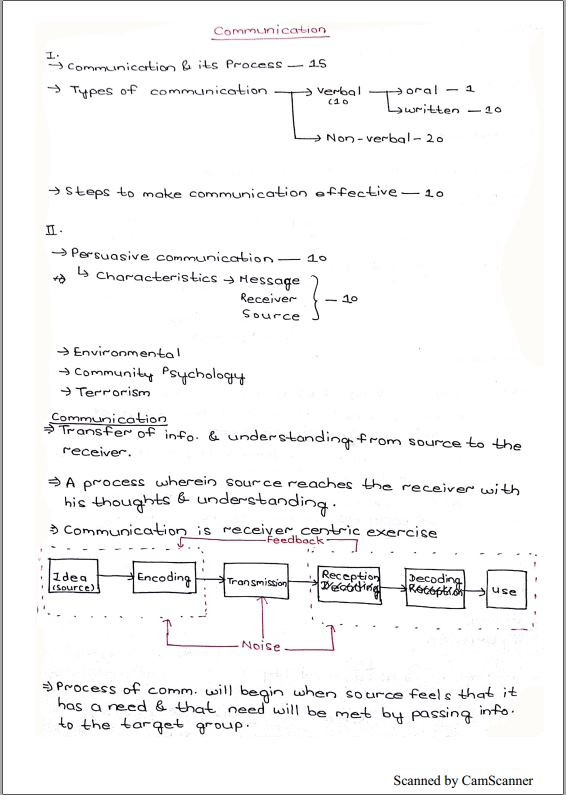 Communication
I.
→ Communication & its Process — 15
→ Types of communication → verbal → oral — 1
(10 → written — 10
→ Non-verbal - 20
→ Steps to make communication effective — 10
II.
→ Persuasive communication — 10
⇒ ↳ Characteristics → Message
Receiver } — 10
Source
→ Environmental
→ Community Psychology
→ Terrorism
Communication
⇒ Transfer of info. & understanding from source to the
receiver.
⇒ A process wherein source reaches the receiver with
his thoughts & understanding.
⇒ Communication is receiver centric exercise
Feedback
Idea
(source)
Encoding
Transmission
Reception
Decoding
Decoding
Reception
use
Noise
⇒ Process of comm. will begin when source feels that it
has a need & that need will be met by passing info.
to the target group.
Scanned by CamScanner